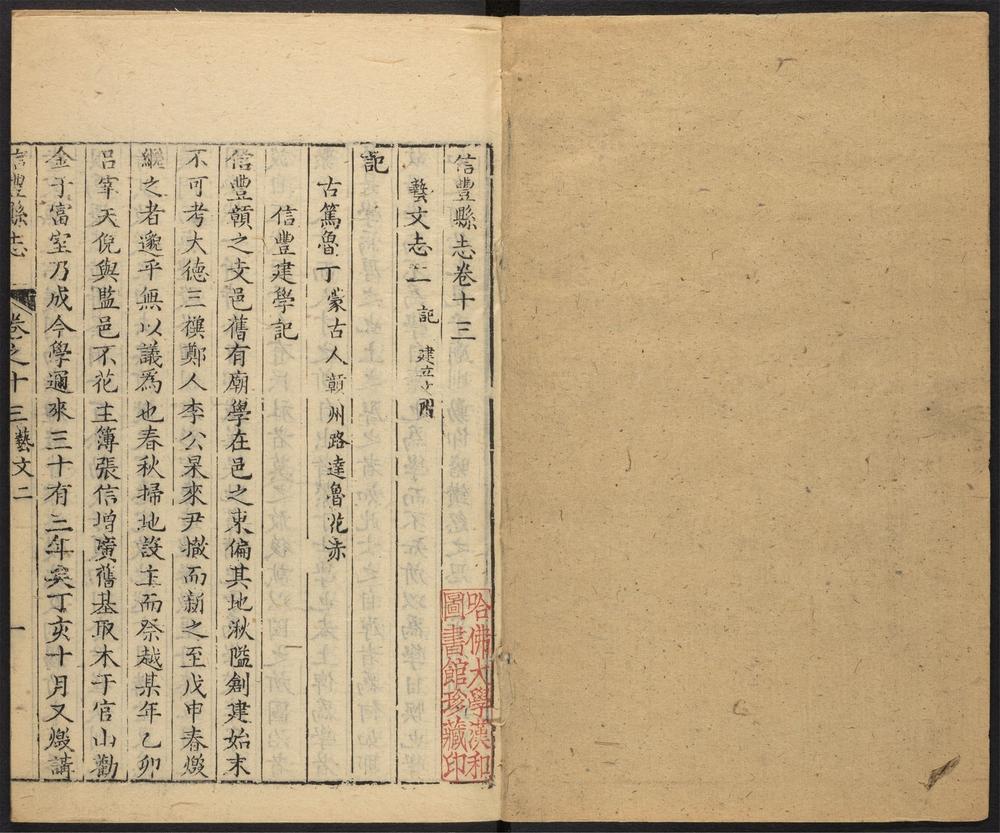 信豐縣志卷十三
藝文志二 記 建立文
記
古篤魯丁蒙古人贛州路達魯花赤
信豐建學記
信豐贛之支邑舊有廟學在邑之東偏其地湫隘創建始末
不可考大德三禩鄭人李公杲來尹撤而新之至戊申春燬
繼之者邈乎無以議為也春秋掃地設主而祭越某年乙卯
呂宰天倪與監邑不花主簿張信增廣舊基取木于官山勸
金于富室乃成今學邇來三十有三年矣丁亥十月又燬講
信豐縣志 卷之十三 藝文二 一
哈佛大學漢和
圖書館珍藏印